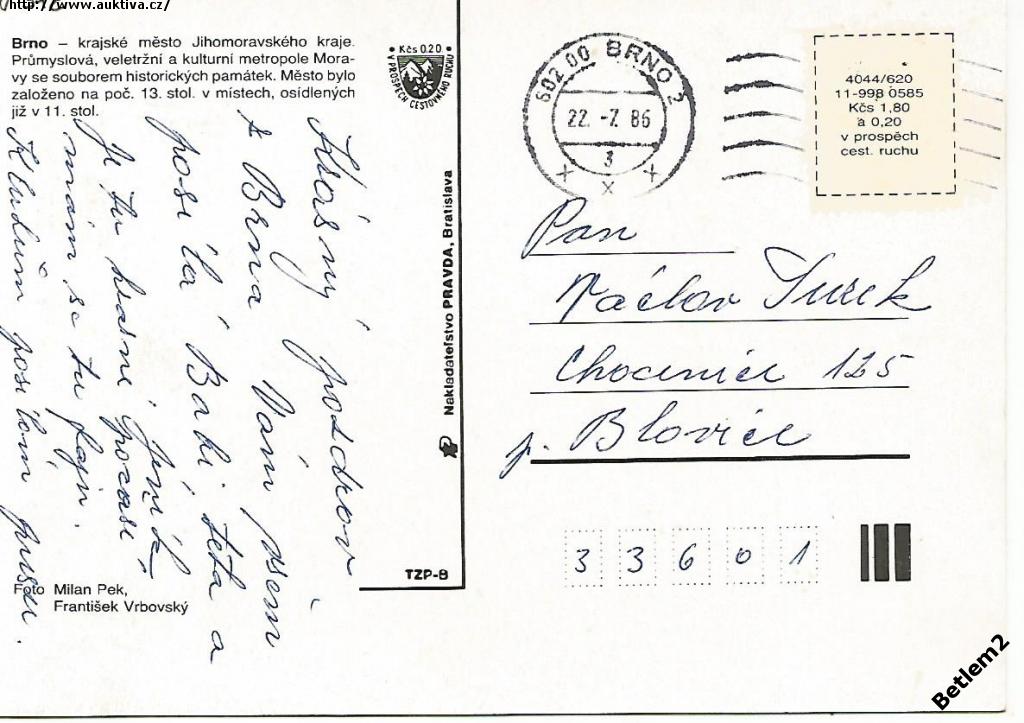 http://www.auktiva.cz/
Brno – krajské město Jihomoravského kraje.
Průmyslová, veletržní a kulturní metropole Mora-
vy se souborem historických památek. Město bylo
založeno na poč. 13. stol. v místech, osídlených
již v 11. stol.
Kčs 0.20
V PROSPĚCH CESTOVNÍHO RUCHU
Krásný pozdrav
z Brna Vám všem
posílá Babi teta a
Je tu krásné počasí
mám se tu fajn.
posílám pusu.
Foto Milan Pek,
František Vrbovský
Nakladatelstvo PRAVDA, Bratislava
TZP-8
602 00 BRNO 2
22. -7. 86
3
4044/620
11-998 0585
Kčs 1,80
a 0,20
v prospěch
cest. ruchu
Pan
Václav Turek
Chocenice 125
p. Blovice
33601
Betlem2